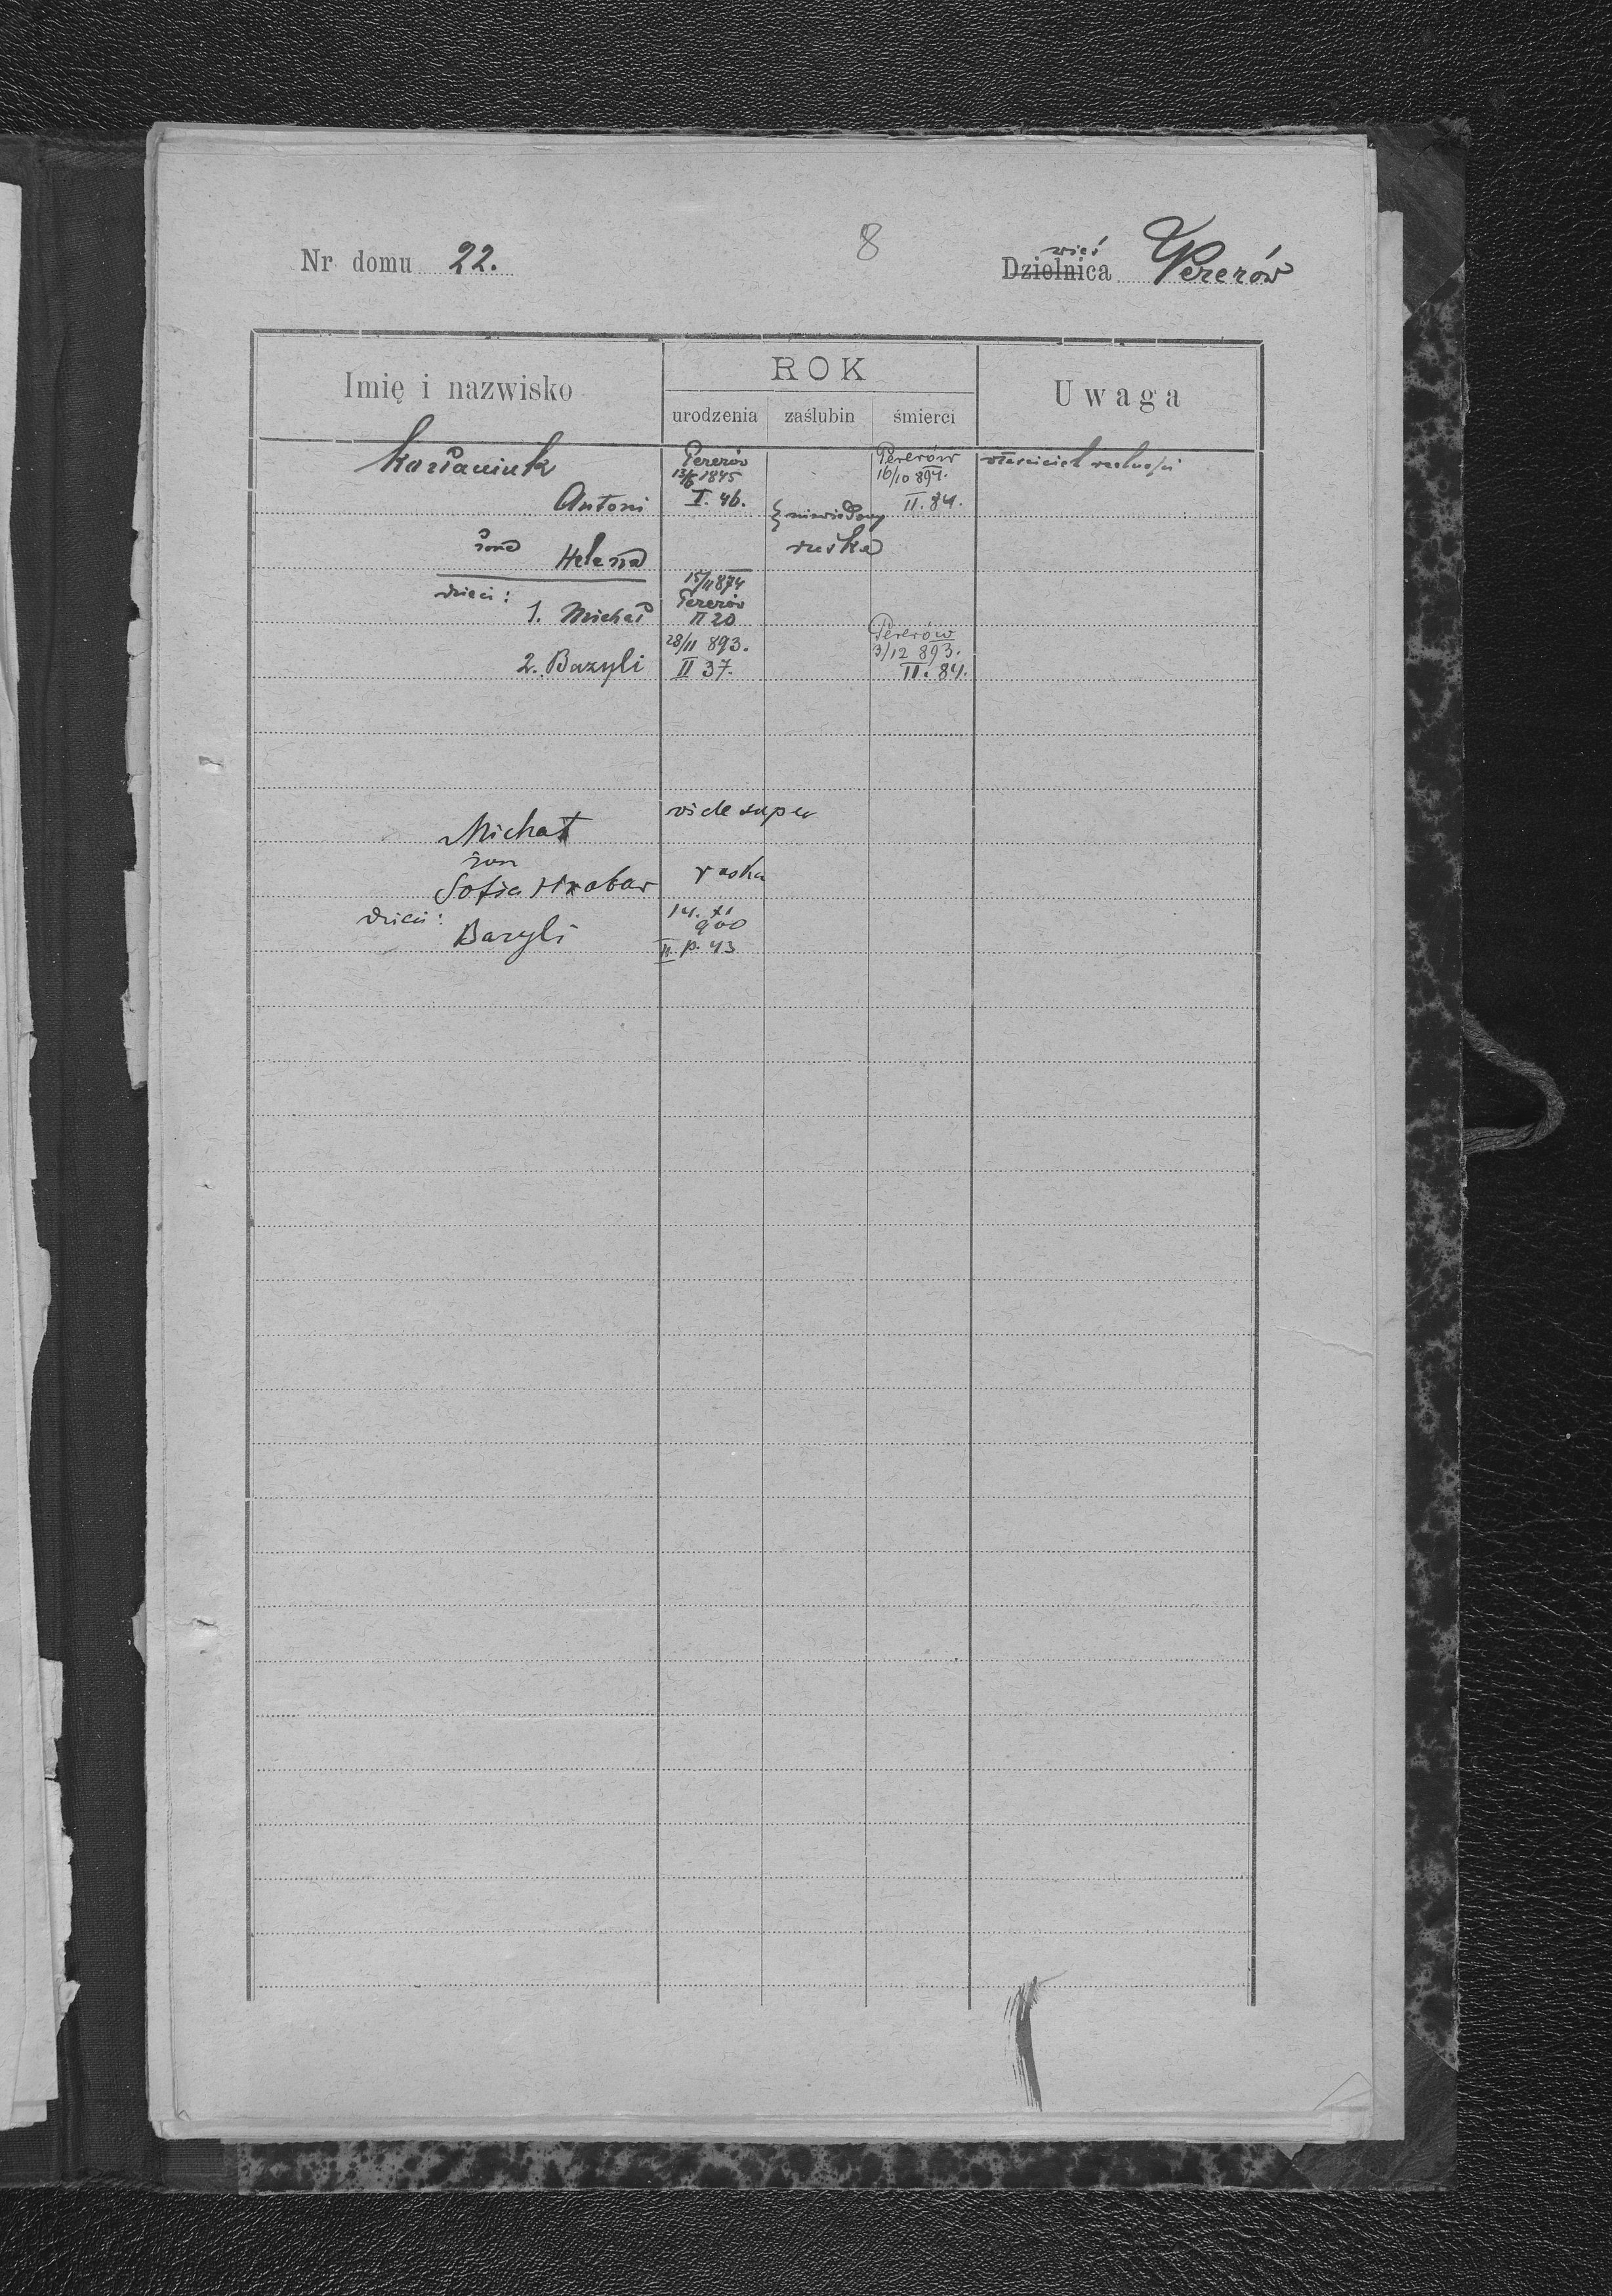 8
Nr domu 22.
wieś
Dzielnica Pererów
Imię i nazwisko
ROK
urodzenia zaślubin śmierci
Uwaga
Kozłaniuk
Antoni
Pererów
13/6 1845
I. 46.
Pererów
16/10 894.
II. 84.
właściciel realności
żona Helena
niewiadomy
ruska
dzieci:
1. Michał
15/11 874
Pererów
II 20
2. Bazyli
28/11 893.
II 37.
Pererów
3/12 893.
II. 84.
Michał
vide supra
żon
Sofia Hrabar
ruska
dzieci:
Bazyli
14. XI
900
II. p. 43